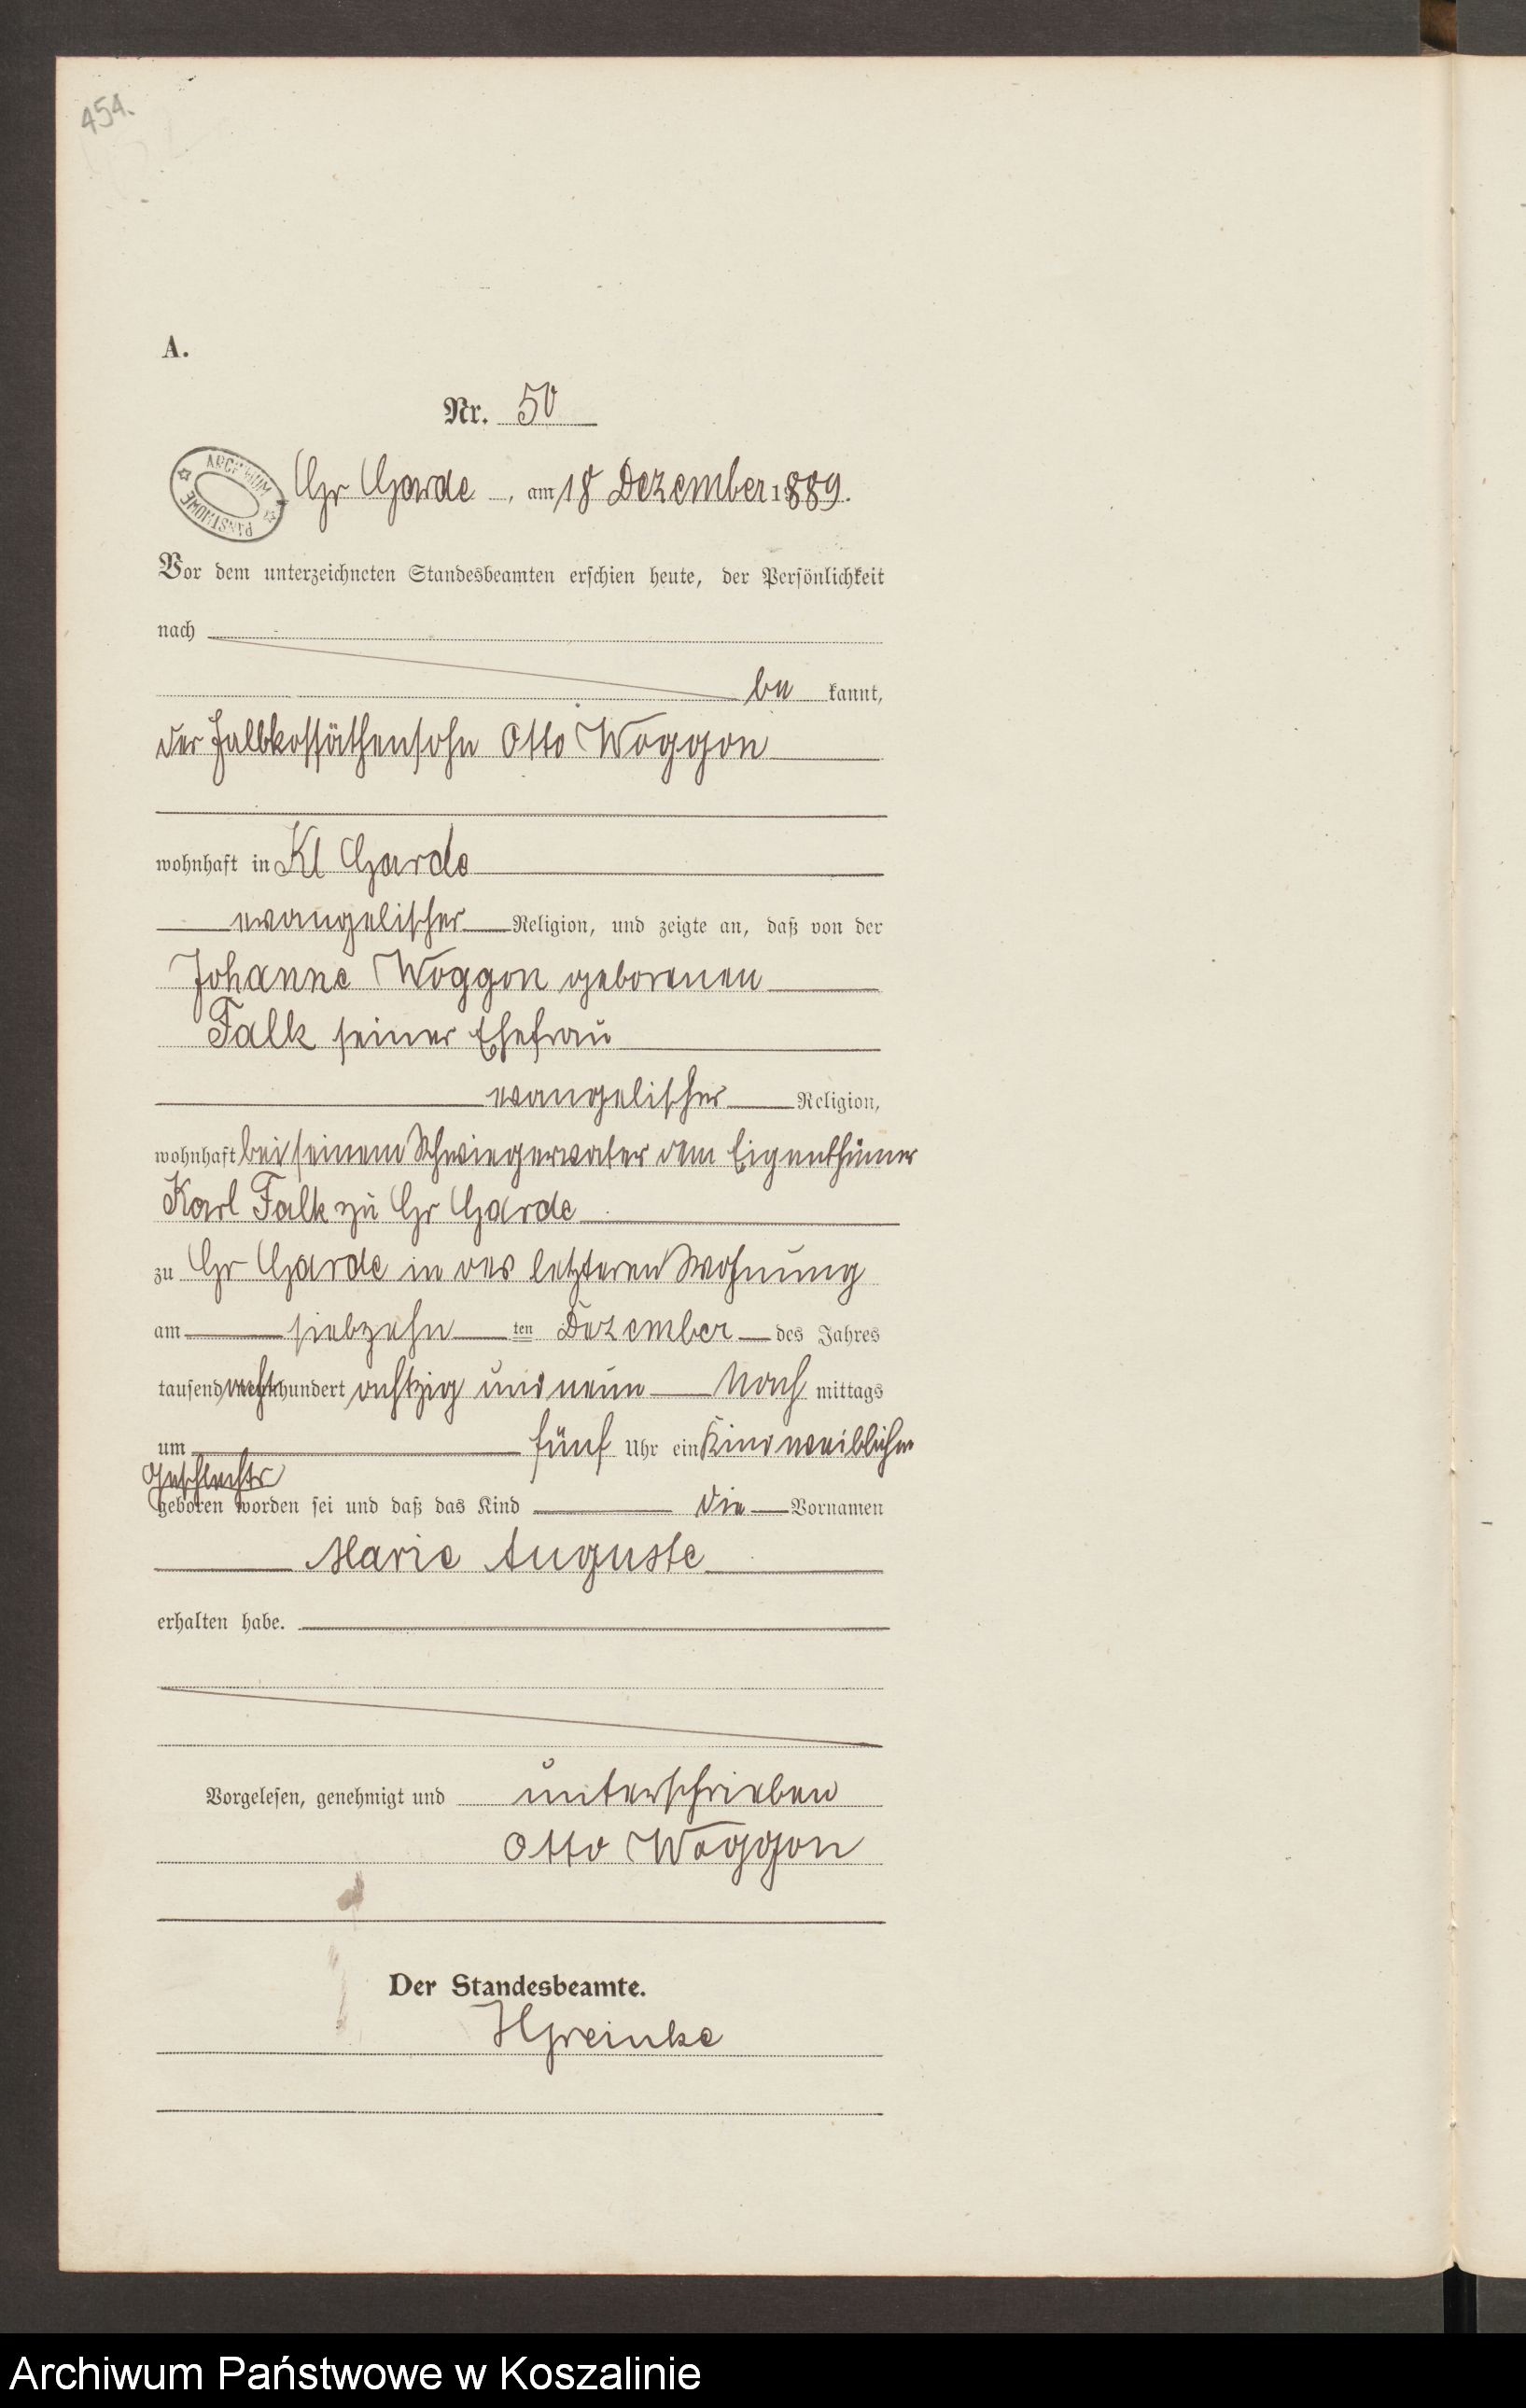 454.
A.
Nr. 50
ARCHIWUM PAŃSTWOWE
Gr Garde, am 18 Dezember 1889.
Vor dem unterzeichneten Standesbeamten erschien heute, der Persönlichkeit
nach
be kannt,
der Halbkossäthensohn Otto Woggon
wohnhaft in Kl Garde
evangelischer Religion, und zeigte an, daß von der
Johanne Woggon geborenen
Falk seiner Ehefrau
evangelischer Religion,
wohnhaft bei seinem Schwiegervater dem Eigenthümer
Karl Falk zu Gr Garde
zu Gr Garde in des letzteren Wohnung
am siebzehn ten Dezember des Jahres
tausend acht hundert achtzig und neun Nach mittags
um fünf Uhr ein Kind weiblichen
Geschlechts
geboren worden sei und daß das Kind die Vornamen
Marie Auguste
erhalten habe.
Vorgelesen, genehmigt und unterschrieben
Otto Woggon
Der Standesbeamte.
HGreinke
Archiwum Państwowe w Koszalinie